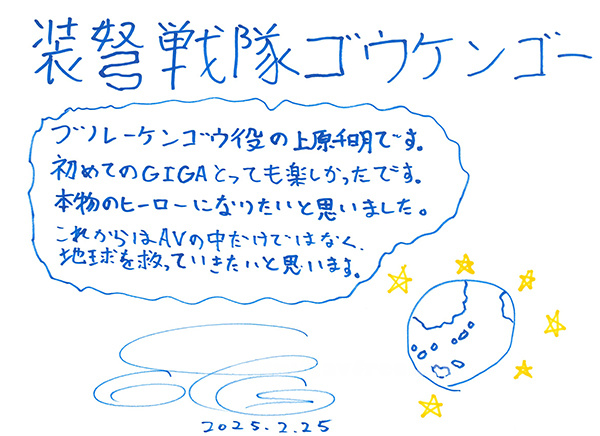 装弩戦隊ゴウケンゴー
ブルーケンゴウ役の上原千明です。
初めてのGIGAとっても楽しかったです。
本物のヒーローになりたいと思いました。
これからはAVの中だけではなく、
地球を救っていきたいと思います。
2025.2.25